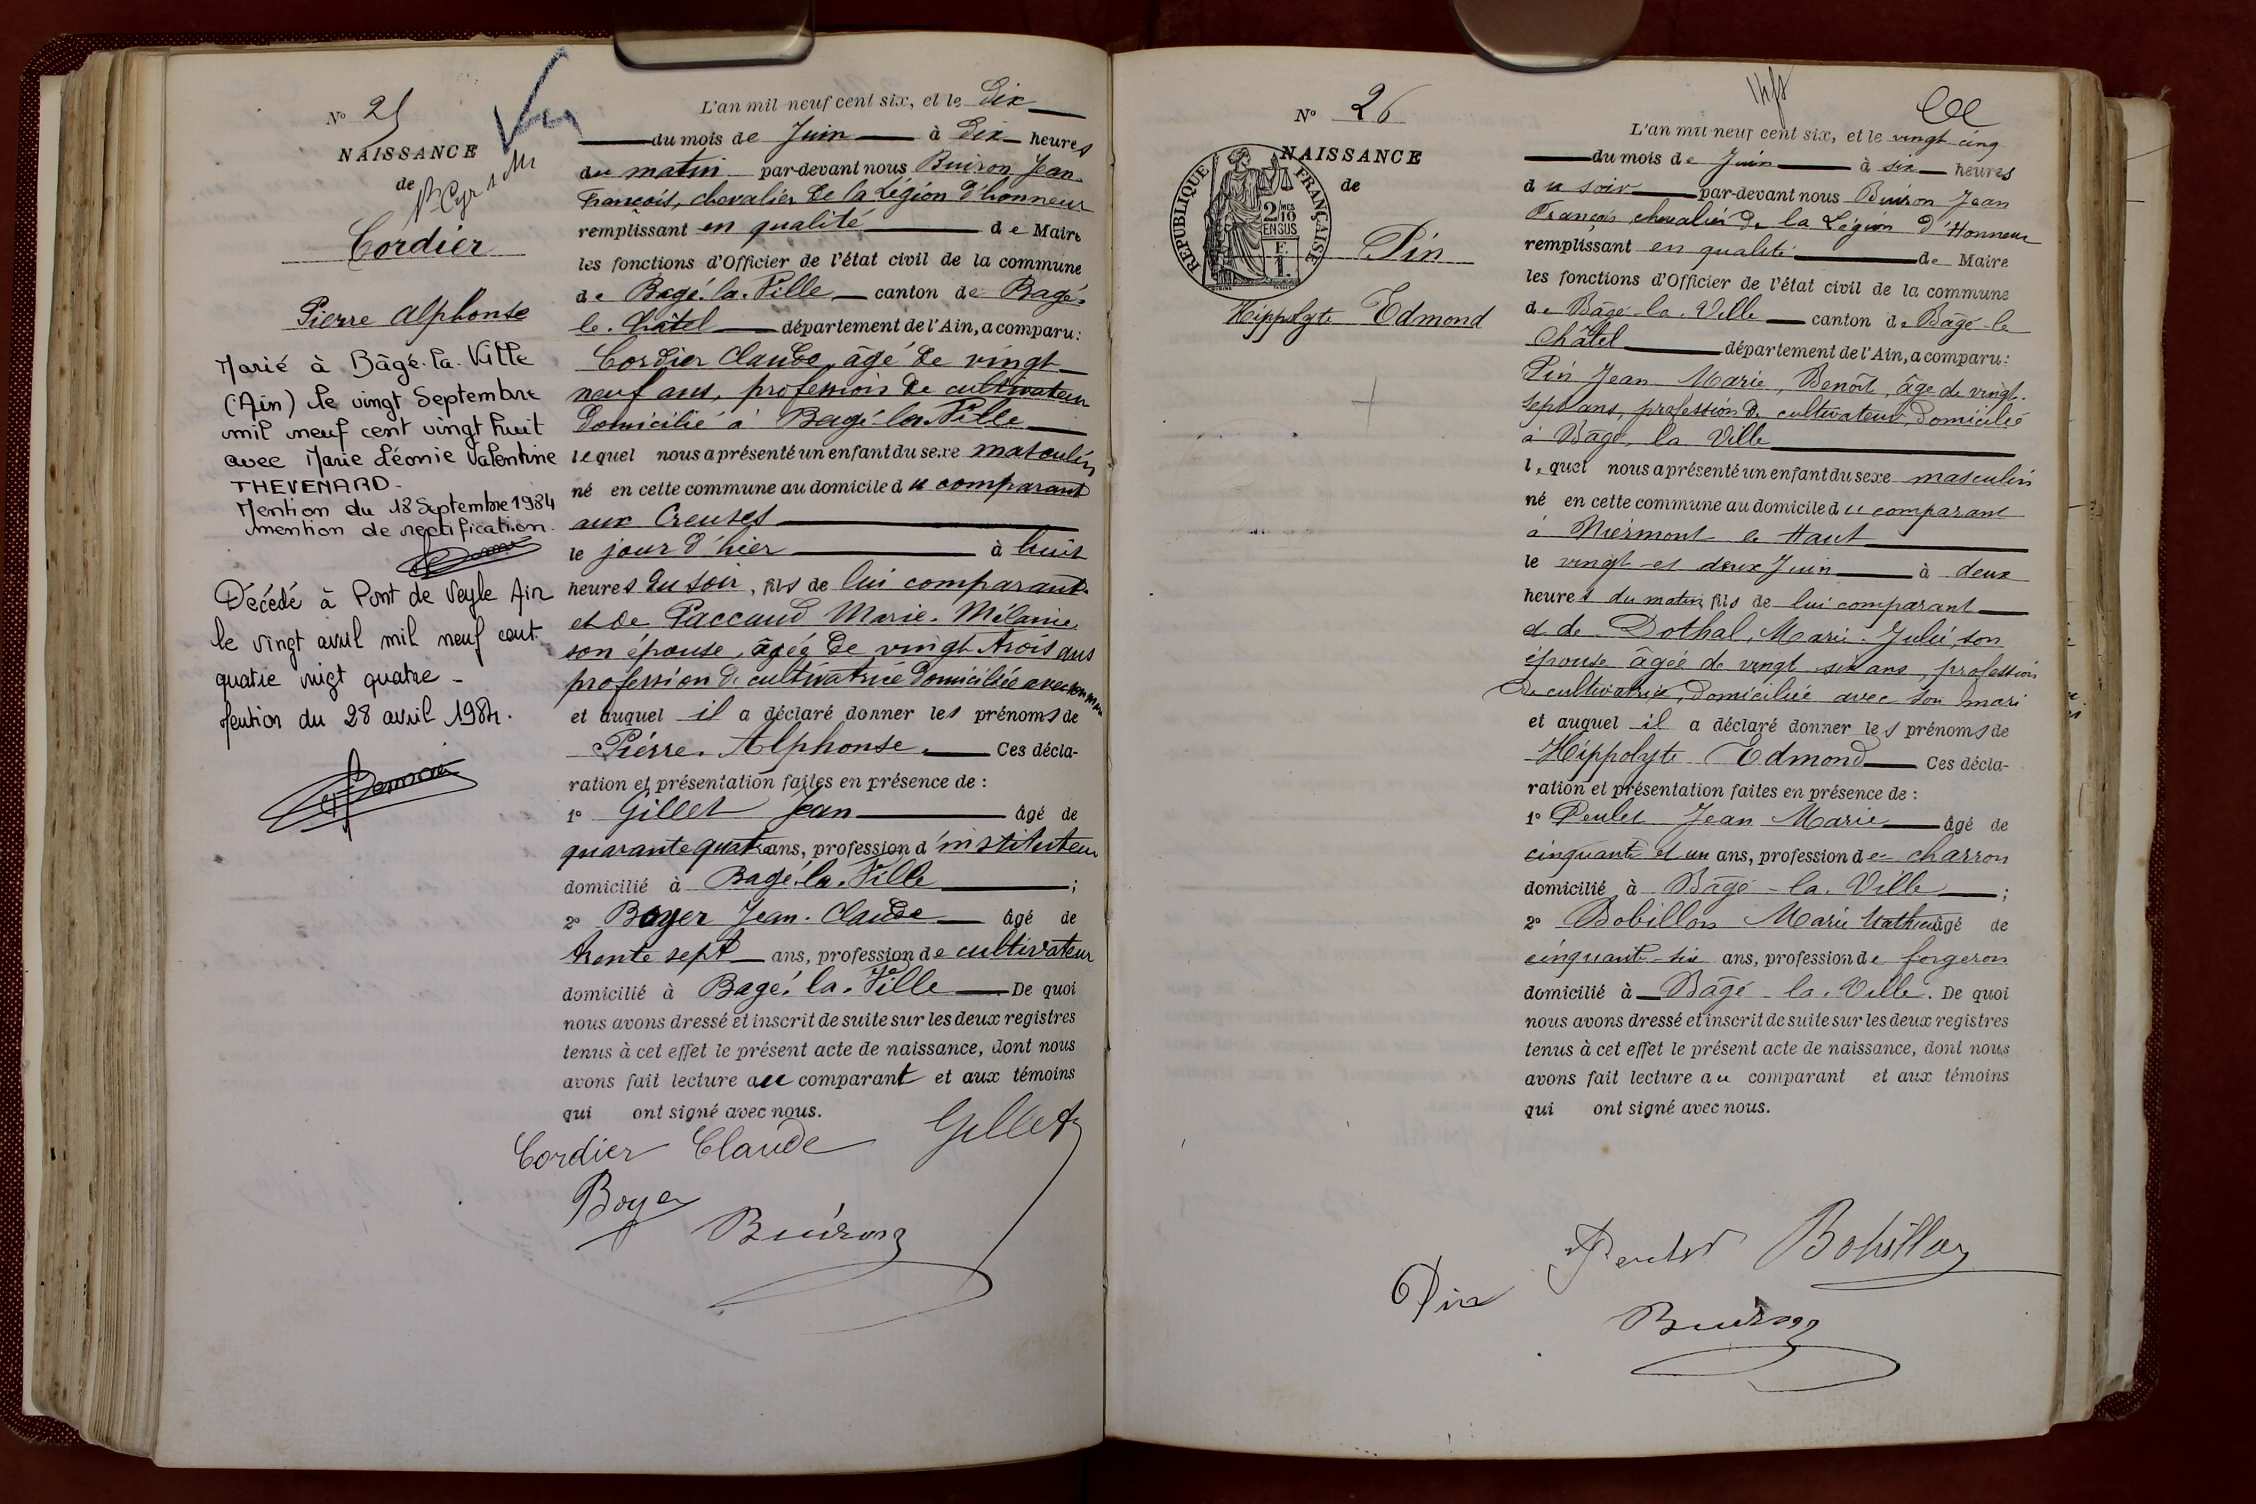 N° 25
NAISSANCE
de
Cordier
Pierre Alphonse
Marié à Bâgé-la-Ville
(Ain) le vingt Septembre
mil neuf cent vingt huit
avec Marie Léonie Valentine
THEVENARD-
Mention du 18 Septembre 1984
mention de rectification.
Décédé à Pont de Veyle Ain
le vingt avril mil neuf cent
quatre vingt quatre -
Mention du 28 avril 1984.
Vu
L'an mil neuf cent six, et le Dix
du mois de Juin à Dix heures
du matin par-devant nous Buiron Jean
François, chevalier de la Légion d'honneur
remplissant en qualité de Maire
les fonctions d'Officier de l'état civil de la commune
de Bagé-la-Ville canton de Bagé-
le-Châtel département de l'Ain, a comparu:
Cordier Claude, âgé de vingt
neuf ans, profession de cultivateur
domicilié à Bagé-la-Ville
lequel nous a présenté un enfant du sexe masculin
né en cette commune au domicile du comparant
aux Creuses
le jour d'hier à huit
heures du soir, fils de lui comparant
et de Paccaud Marie-Mélanie
son épouse, âgée de vingt trois ans
profession de cultivatrice domiciliée avec son mari
et auquel il a déclaré donner les prénoms de
Pierre-Alphonse. Ces décla-
ration et présentation failes en présence de :
1° Gillet Jean âgé de
quarante quatre ans, profession d'instituteur
domicilié à Bagé-la-Ville ;
2° Boyer Jean-Claude âgé de
trente sept ans, profession de cultivateur
domicilié à Bagé-la-Ville De quoi
nous avons dressé et inscrit de suite sur les deux registres
tenus à cet effet le présent acte de naissance, dont nous
avons fait lecture au comparant et aux témoins
qui ont signé avec nous.
Cordier Claude Gillet
Boyer
Buiron
N° 26
NAISSANCE
de
RÉPUBLIQUE FRANÇAISE
2/10 MES
EN SUS
Pin
Hippolyte Edmond
L'an mil neuf cent six, et le vingt cinq
du mois de Juin à six heures
du soir par-devant nous Buiron Jean
François chevalier de la Légion d'Honneur
remplissant en qualité de Maire
les fonctions d'Officier de l'état civil de la commune
de Bâgé-la-Ville canton de Bâgé-le
Châtel département de l'Ain, a comparu:
Pin Jean Marie, Benoît, âgé de vingt-
sept ans, profession de cultivateur, domicilié
à Bâgé la Ville
lequel nous a présenté un enfant du sexe masculin
né en cette commune au domicile du comparant
à Miermont le Haut
le vingt et deux Juin à deux
heures du matin, fils de lui comparant
et de Dothal, Marie-Julie, son
épouse âgée de vingt six ans, profession
de cultivatrice, domiciliée avec son mari
et auquel il a déclaré donner les prénoms de
Hippolyte Edmond Ces décla-
ration et présentation faites en présence de :
1° Peulet Jean Marie âgé de
cinquante et un ans, profession de charron
domicilié à Bâgé-la-Ville ;
2° Bobillon Marie Mathieu âgé de
cinquante-six ans, profession de forgeron
domicilié à Bâgé-la-Ville. De quoi
nous avons dressé et inscrit de suite sur les deux registres
tenus à cet effet le présent acte de naissance, dont nous
avons fait lecture au comparant et aux témoins
qui ont signé avec nous.
Peulet Bobillon
Pin
Buiron